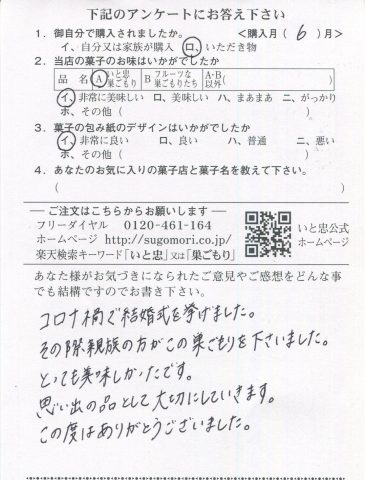 下記のアンケートにお答え下さい
1. 御自分で購入されましたか。 <購入月( 6 )月>
イ、自分又は家族が購入 ロ、いただき物
2. 当店の菓子のお味はいかがでしたか
品 名 A いと忠巣ごもり B フルーツな巣ごもりたち A・B以外( )
イ、非常に美味しい ロ、美味しい ハ、まあまあ ニ、がっかり
ホ、その他( )
3. 菓子の包み紙のデザインはいかがでしたか
イ、非常に良い ロ、良い ハ、普通 ニ、悪い
ホ、その他( )
4. あなたのお気に入りの菓子店と菓子名を教えて下さい。
( )
ご注文はこちらからお願いします
フリーダイヤル 0120-461-164
ホームページ http://sugomori.co.jp/
楽天検索キーワード「いと忠」又は「巣ごもり」
いと忠公式
ホームページ
あなた様がお気づきになられたご意見やご感想をどんな事
でも結構ですのでお書き下さい。
コロナ禍で結婚式を挙げました。
その際親族の方がこの巣ごもりを下さいました。
とっても美味しかったです。
思い出の品として大切にしていきます。
この度はありがとうございました。